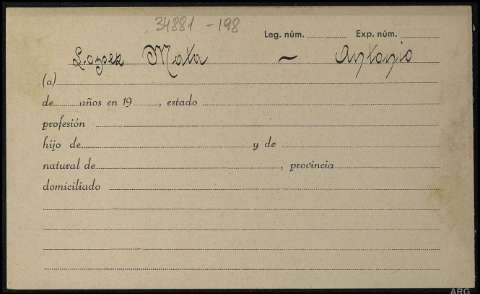 34881-198
Leg. núm. Exp. núm.
Lopez Mata — Antonio
(a)
de años en 19 , estado
profesión
hijo de y de
natural de , provincia
domiciliado
ARG